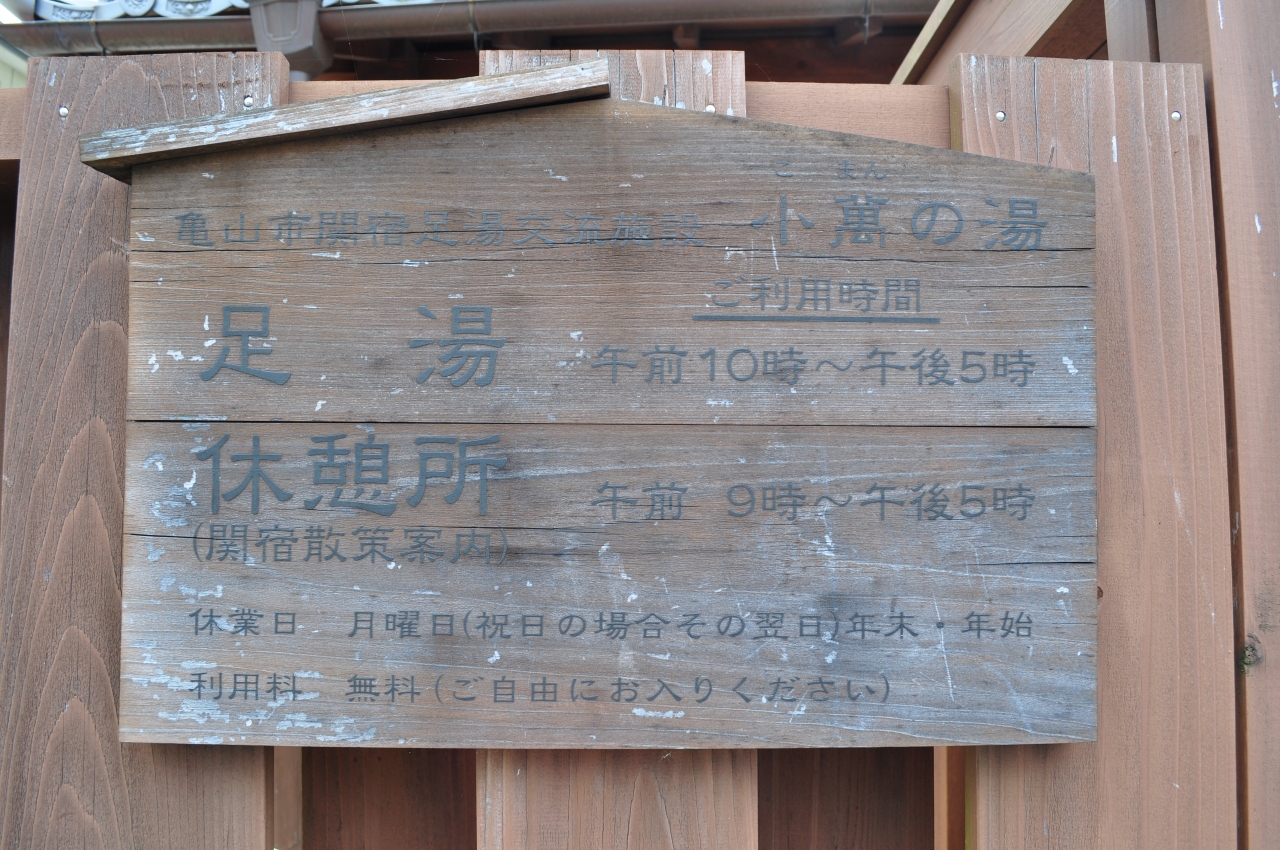 こまん
亀山市関宿足湯交流施設 小萬の湯
ご利用時間
足 湯 午前10時～午後5時
休憩所 午前 9時～午後5時
(関宿散策案内)
休業日 月曜日(祝日の場合その翌日)年末・年始
利用料 無料(ご自由にお入りください)